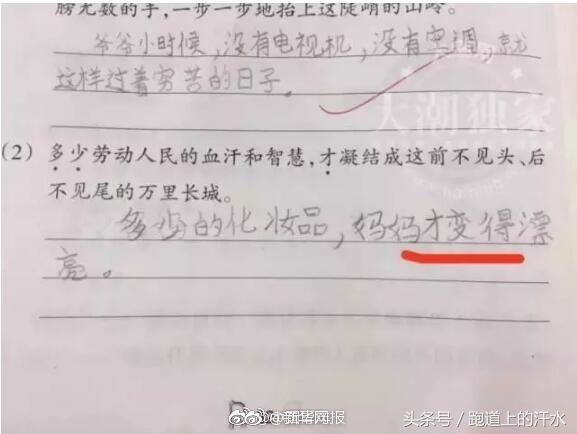 膀无数的手,一步一步地抬上这陡峭的山岭。
爷爷小时候,没有电视机,没有空调,就
这样过着穷苦的日子。
大潮独家
(2) 多少劳动人民的血汗和智慧,才凝结成这前不见头、后
不见尾的万里长城。
多少的化妆品,妈妈才变得漂
亮。
@新晴网报
头条号/跑道上的汗水